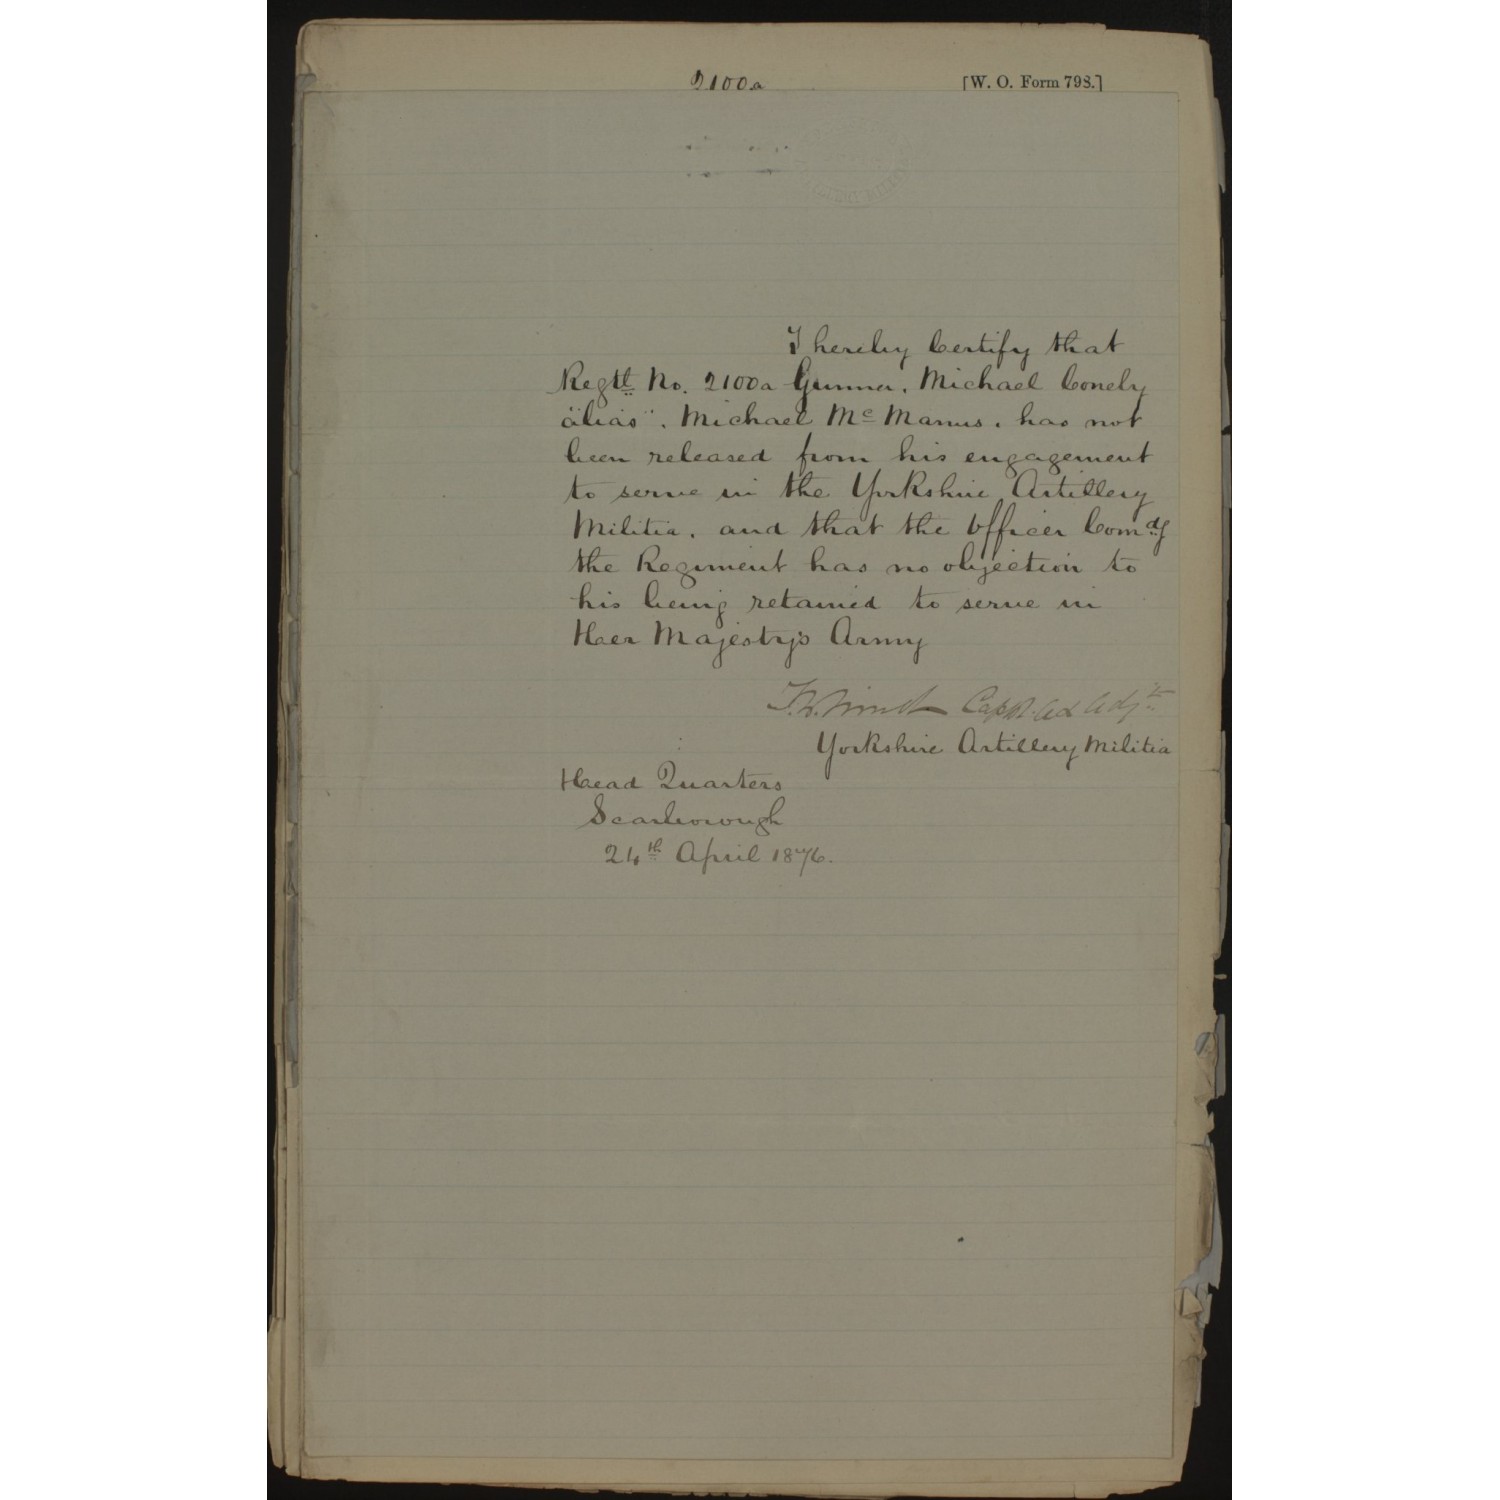 2100a
[W. O. Form 798.]
I hereby Certify that
Regtl No. 2100a Gunner. Michael Conely
"alias". Michael Mc Manus. has not
been released from his engagement
to serve in the Yorkshire Artillery
Militia. and that the Officer Comdg
the Regiment has no objection to
his being retained to serve in
Her Majesty's Army
Capt. & Adjt
Yorkshire Artillery Militia
Head Quarters
Scarborough
24th April 1876.